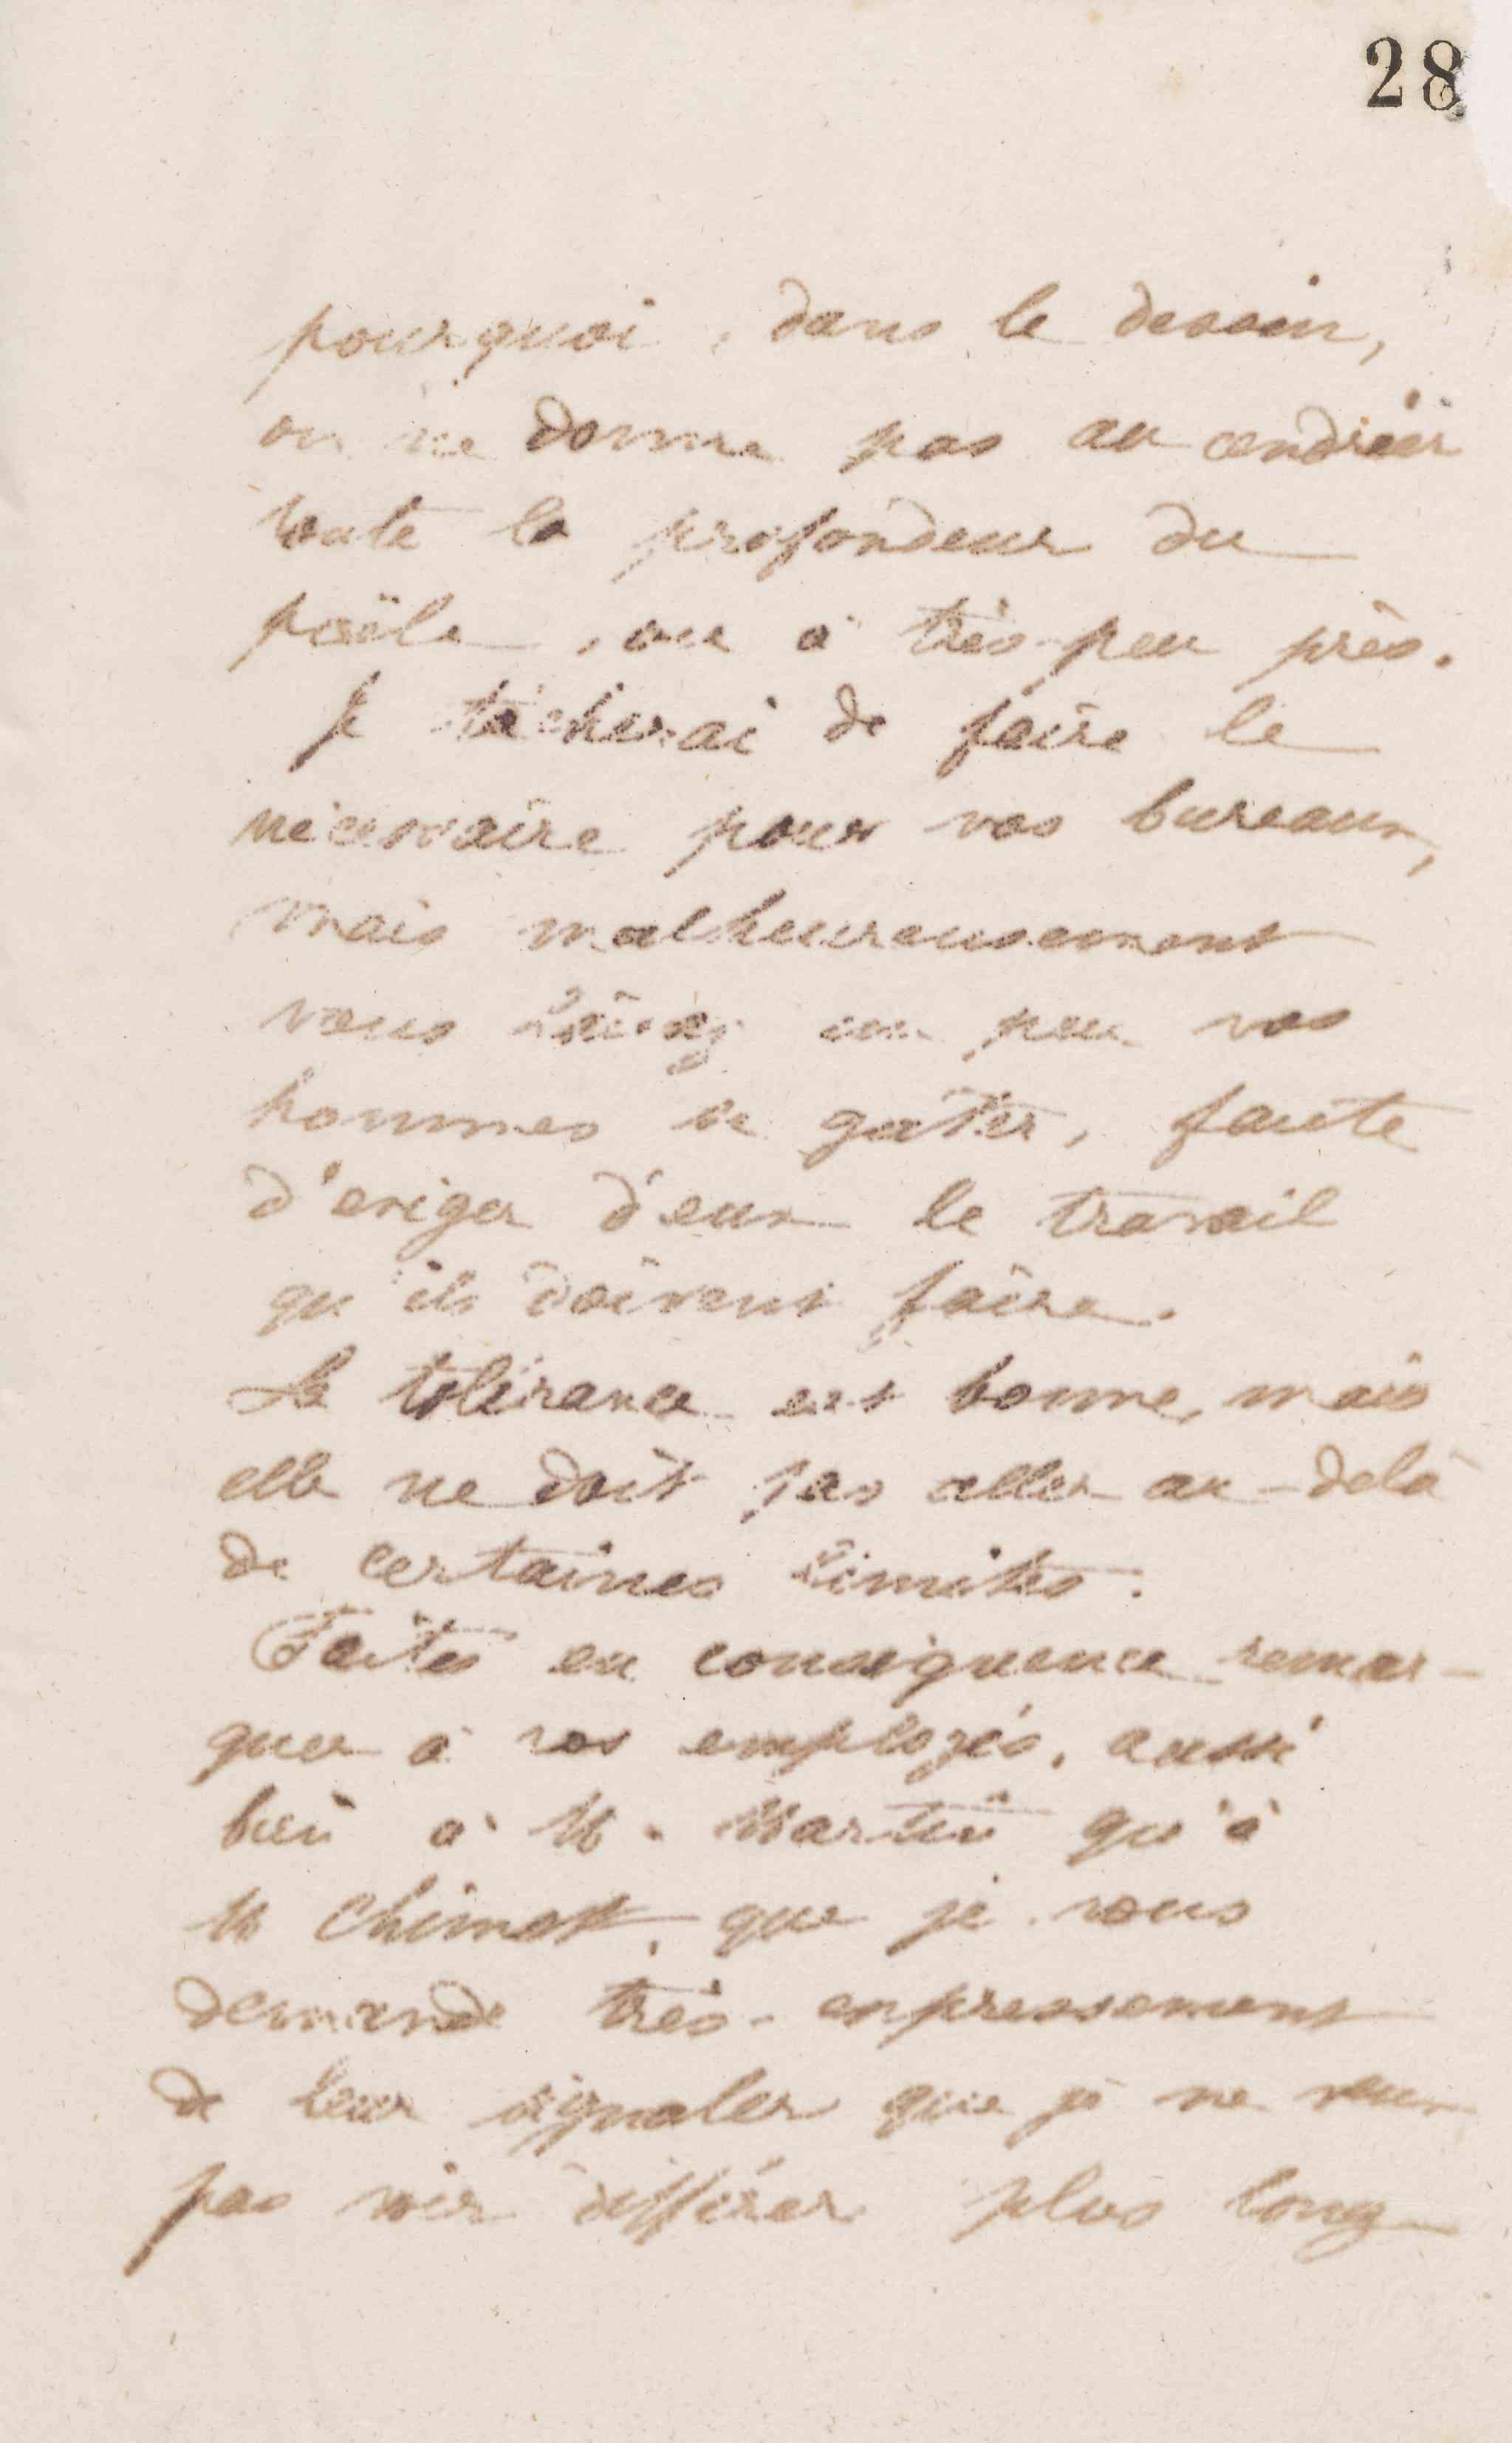 28
pourquoi, dans le dessin,
on ne donne pas au cendrier
toute la profondeur du
poële, ou à très peu près.
Je tâcherai de faire le
nécessaire pour vos bureaux,
mais malheureusement
vous laissez un peu vos
hommes se gâter, faute
d'exiger d'eux le travail
qu'ils doivent faire.
La tolérance est bonne, mais
elle ne doit pas aller au-delà
de certaines limites.
Faites en conséquence remar-
quer à vos employés, aussi
bien à M. Martin qu'à
M Chimot, que je vous
demande très-expressement
de leur signaler que je ne veux
pas voir différer plus long